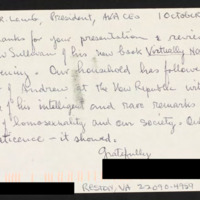 Lamb, President, AVA CEO 1 October
thanks for your presentation & review
Sullivan & his new book Virtually No
Our household has follow
of Andrew at the New Republic with
his intelligent and rare remarks
of homosexuality and our society.
it should.
Gratefully
RESTON, VA 22090-4989